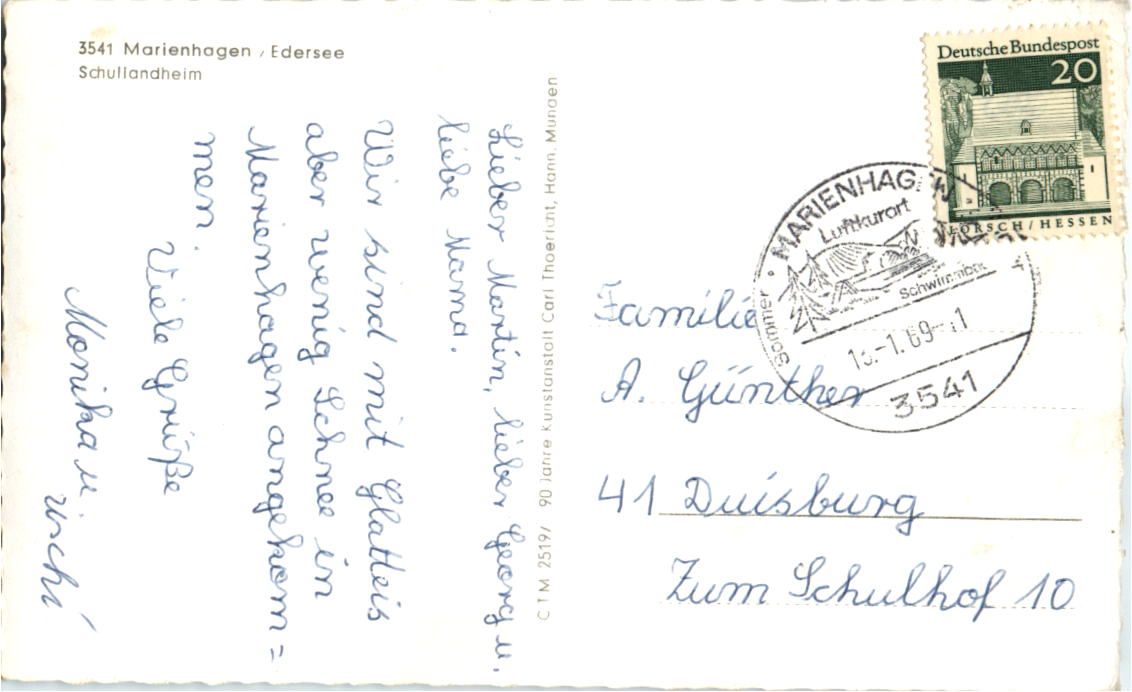 3541 Marienhagen / Edersee
Schullandheim
Lieber Martin, lieber Georg u.
liebe Mama.
Wir sind mit Glatteis
aber wenig Schnee in
Marienhagen angekom=
men.
Viele Grüße
Monika u.
Uschi
CTM 2519/ 90 Jahre Kunstanstalt Carl Thoericht, Hann. Münden
Deutsche Bundespost
20
LORSCH/HESSEN
MARIENHAGEN
Luftkurort
Schwimmbad
Sommer
-1.69-
3541
Familie
A. Günther
41 Duisburg
Zum Schulhof 10